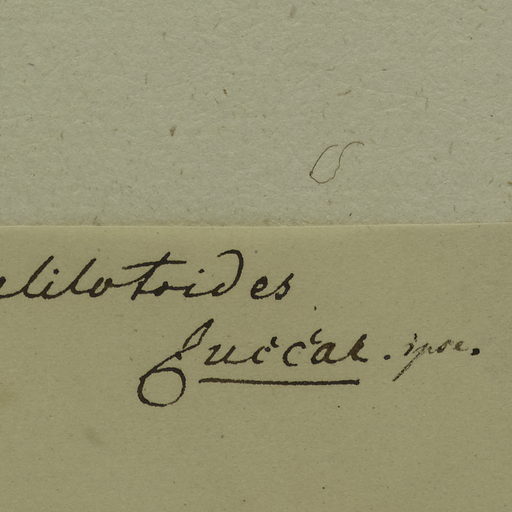 elilotoides
Zuccar. ipse.